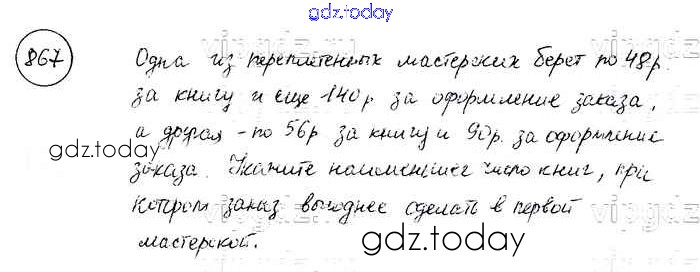 gdz.today
867
Одна из переплетенных мастерских берет по 48р.
за книгу и еще 140р за оформление заказа,
а другая - по 56р за книгу и 90р. за оформление
gdz.today
заказа. Укажите наименьшее число книг, при
котором заказ выгоднее сделать в первой
мастерской.
gdz.today